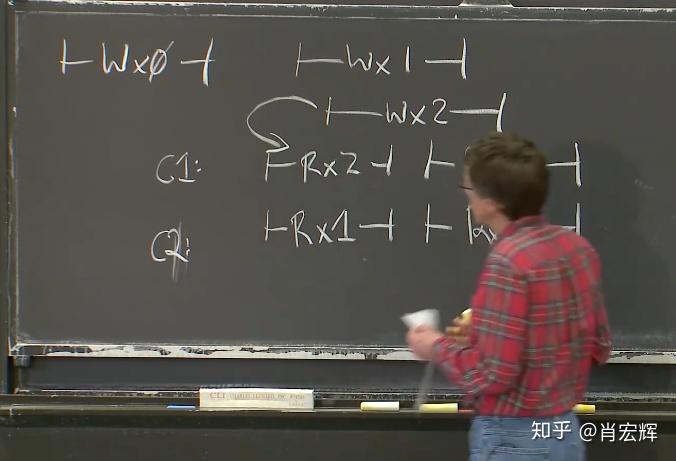 ⊢Wxø⊣ ⊢Wx1⊣
⊢Wx2⊣
C1: ⊢Rx2⊣
C2: ⊢Rx1⊣
知乎 @肖宏辉